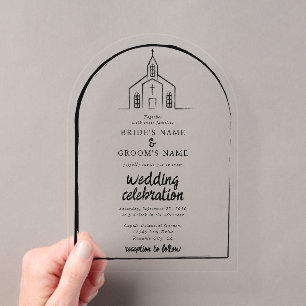 Together
with their families
BRIDE'S NAME
&
GROOM'S NAME
wedding
celebration
Saturday, September 27, 2030
at 3 o'clock in the afternoon
reception to follow